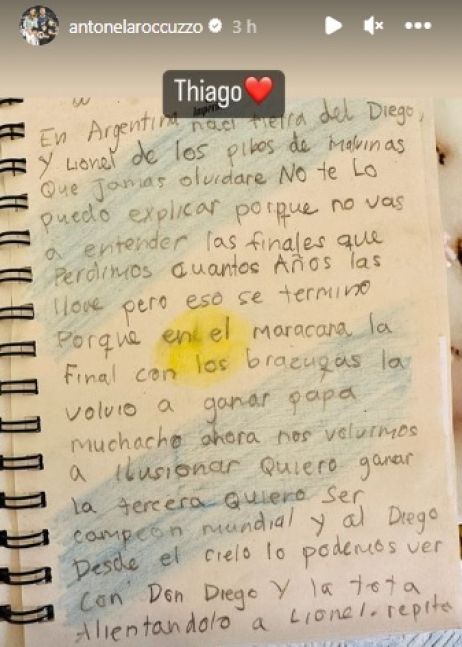 antonelaroccuzzo 3 h
Thiago
En Argentina naci tierra del Diego,
y Lionel de los pibes de Malvinas
Que Jamas olvidare NO te Lo
puedo explicar porque no vas
a entender las finales que
Perdimos cuantos Años las
llore pero eso se termino
Porque en el Maracana la
Final con los brazucas la
volvio a ganar papa
muchacho ahora nos volvimos
a ilusionar Quiero ganar
la tercera Quiero Ser
campeon mundial y al Diego
Desde el cielo lo podemos ver
Con Don Diego y la tota
Alientandolo a Lionel. repite